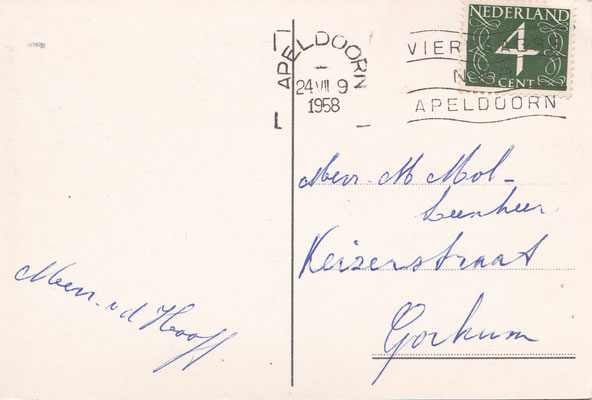 APELDOORN
24 VII 9
1958
VIER
N
APELDOORN
NEDERLAND
4
CENT
Mevr. M Mol-
Leenheer
Keizerstraat
Gorkum
Mevr. v d Hooff.